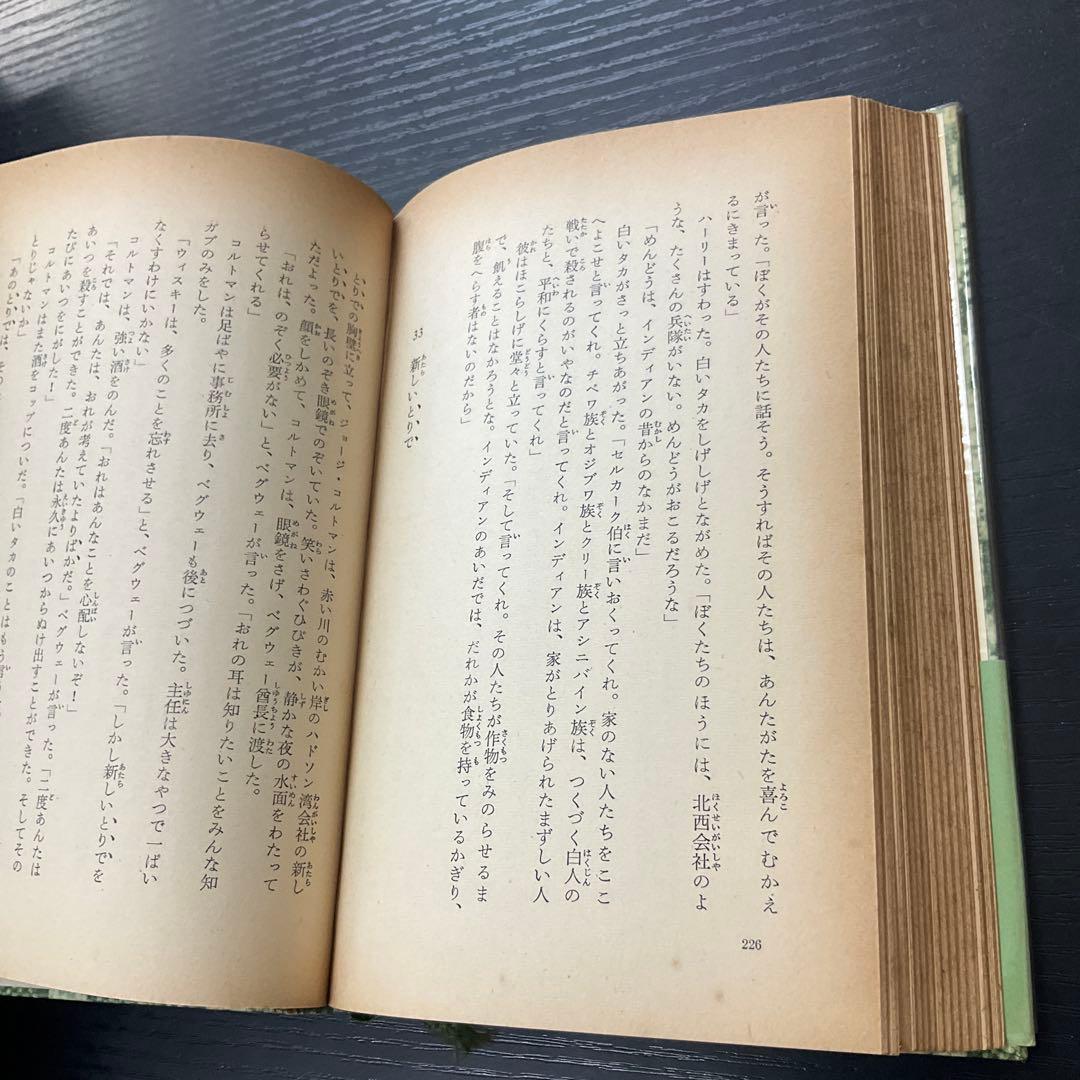 が言った。「ぼくがその人たちに話そう。そうすればその人たちは、あんたがたを喜んでむかえ
るにきまっている」
ハーリーはすわった。白いタカをしげしげとながめた。「ぼくたちのほうには、北西会社のよ
うな、たくさんの兵隊がいない。めんどうがおこるだろうな」
「めんどうは、インディアンの昔からのなかまだ」
白いタカがさっと立ちあがった。「セルカーク伯に言いおくってくれ。家のない人たちをここ
へよこせと言ってくれ。チペワ族とオジブワ族とクリー族とアシニバイン族は、つくづく白人の
戦いで殺されるのがいやなのだと言ってくれ。インディアンは、家がとりあげられたまずしい人
たちと、平和にくらすと言ってくれ」
彼はほこらしげに堂々と立っていた。「そして言ってくれ。その人たちが作物をみのらせるま
で、飢えることはなかろうとな。インディアンのあいだでは、だれかが食物を持っているかぎり、
腹をへらす者はないのだから」
33 新しいとりで
226
とりでの胸壁に立って、ジョージ・コルトマンは、赤い川のむかい岸のハドソン湾会社の新し
いとりでを、長いのぞき眼鏡でのぞいていた。笑いさわぐひびきが、静かな夜の水面をわたって
ただよった。顔をしかめて、コルトマンは、眼鏡をさげ、ペグウェー酋長に渡した。
「おれは、のぞく必要がない」と、ペグウェーが言った。「おれの耳は知りたいことをみんな知
らせてくれる」
コルトマンは足ばやに事務所に去り、ペグウェーも後につづいた。主任は大きなやつで一ぱい
ガブのみをした。
「ウィスキーは、多くのことを忘れさせる」と、ペグウェーが言った。「しかし新しいとりでを
なくすわけにいかない」
コルトマンは、強い酒をのんだ。「おれはあんなことを心配しないぞ!」
「それでは、あんたは、おれが考えていたよりばかだ。」ペグウェーが言った。「二度あんたは
あいつを殺すことができた。二度あんたは永久にあいつからぬけ出すことができた。そしてその
たびにあいつをにがした!」
コルトマンはまた酒をコップについだ。「白いタカのことはもう言
とりじゃないか」
「あのとりでは、その